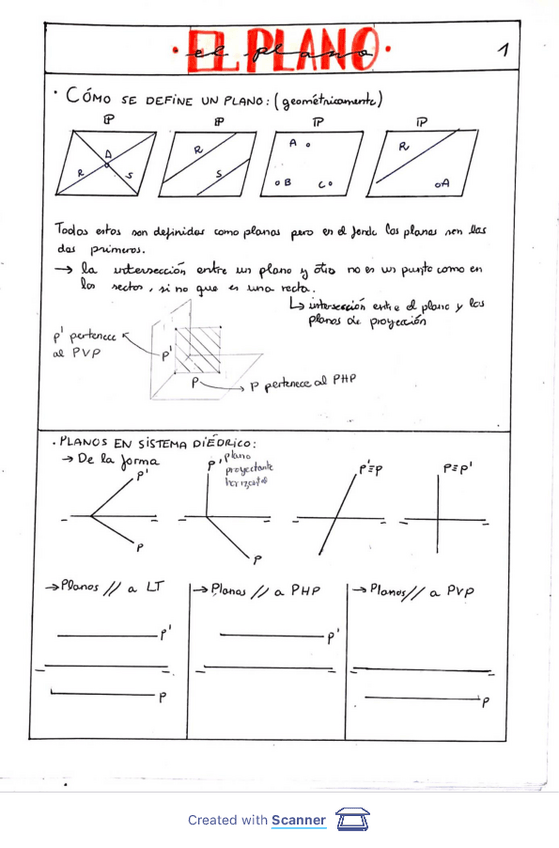 · EL PLANO ·
el plano
1
· CÓMO SE DEFINE UN PLANO: (geométricamente)
P P P P
R A S
R S
A B C
R A
Todos estos son definidos como planos pero en el fondo los planos son las
dos primeros.
→ la intersección entre un plano y otro no es un punto como en
las rectas, si no que es una recta.
↳ intersección entre el plano y los
planos de proyección
p' pertenece
al PVP
p'
P
P pertenece al PHP
· PLANOS EN SISTEMA DIÉDRICO:
→ De la forma
p'
p
p' plano
proyectante
horizontal
p
p'≡p
p≡p'
→ Planos // a LT
→ Planos // a PHP
→ Planos // a PVP
p'
p
p'
p
Created with Scanner